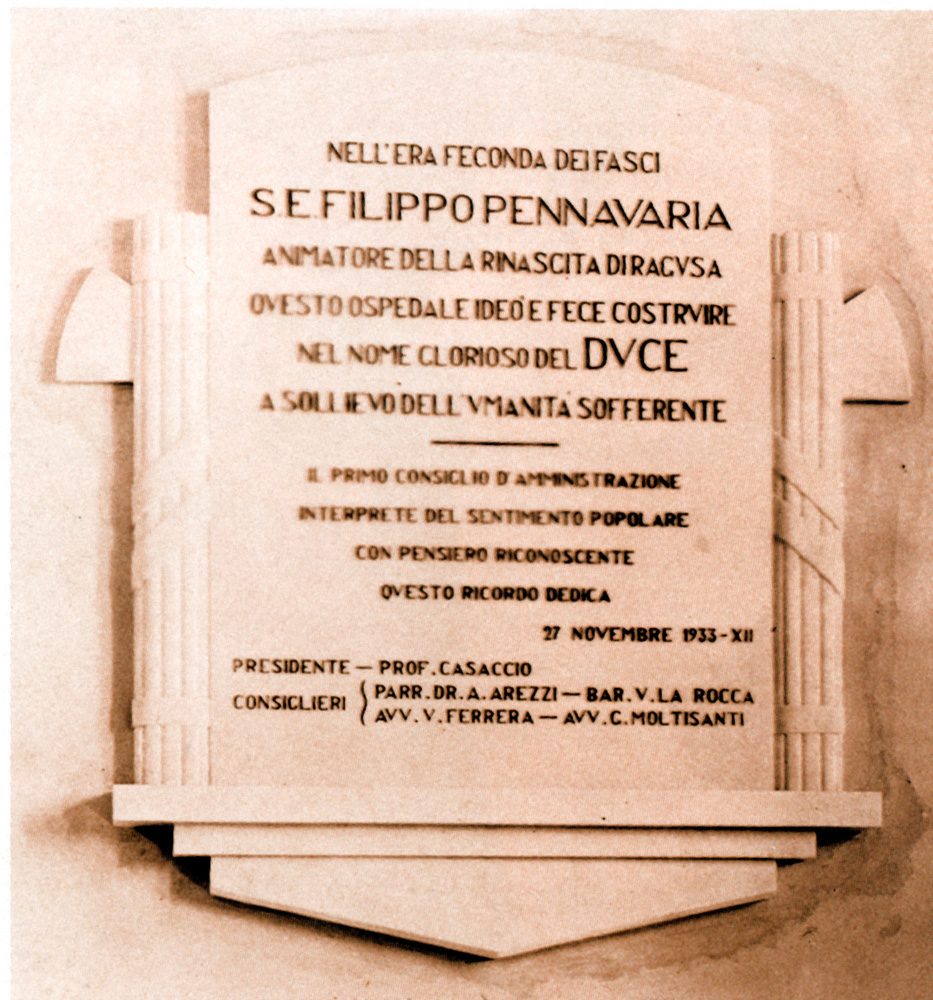 NELL'ERA FECONDA DEI FASCI
S.E. FILIPPO PENNAVARIA
ANIMATORE DELLA RINASCITA DI RAGVSA
QVESTO OSPEDALE IDEÒ E FECE COSTRVIRE
NEL NOME GLORIOSO DEL DVCE
A SOLLIEVO DELL'VMANITÀ SOFFERENTE
IL PRIMO CONSIGLIO D'AMMINISTRAZIONE
INTERPRETE DEL SENTIMENTO POPOLARE
CON PENSIERO RICONOSCENTE
QVESTO RICORDO DEDICA
27 NOVEMBRE 1933-XII
PRESIDENTE — PROF. CASACCIO
CONSIGLIERI { PARR. DR. A. AREZZI — BAR. V. LA ROCCA
AVV. V. FERRERA — AVV. G. MOLTISANTI